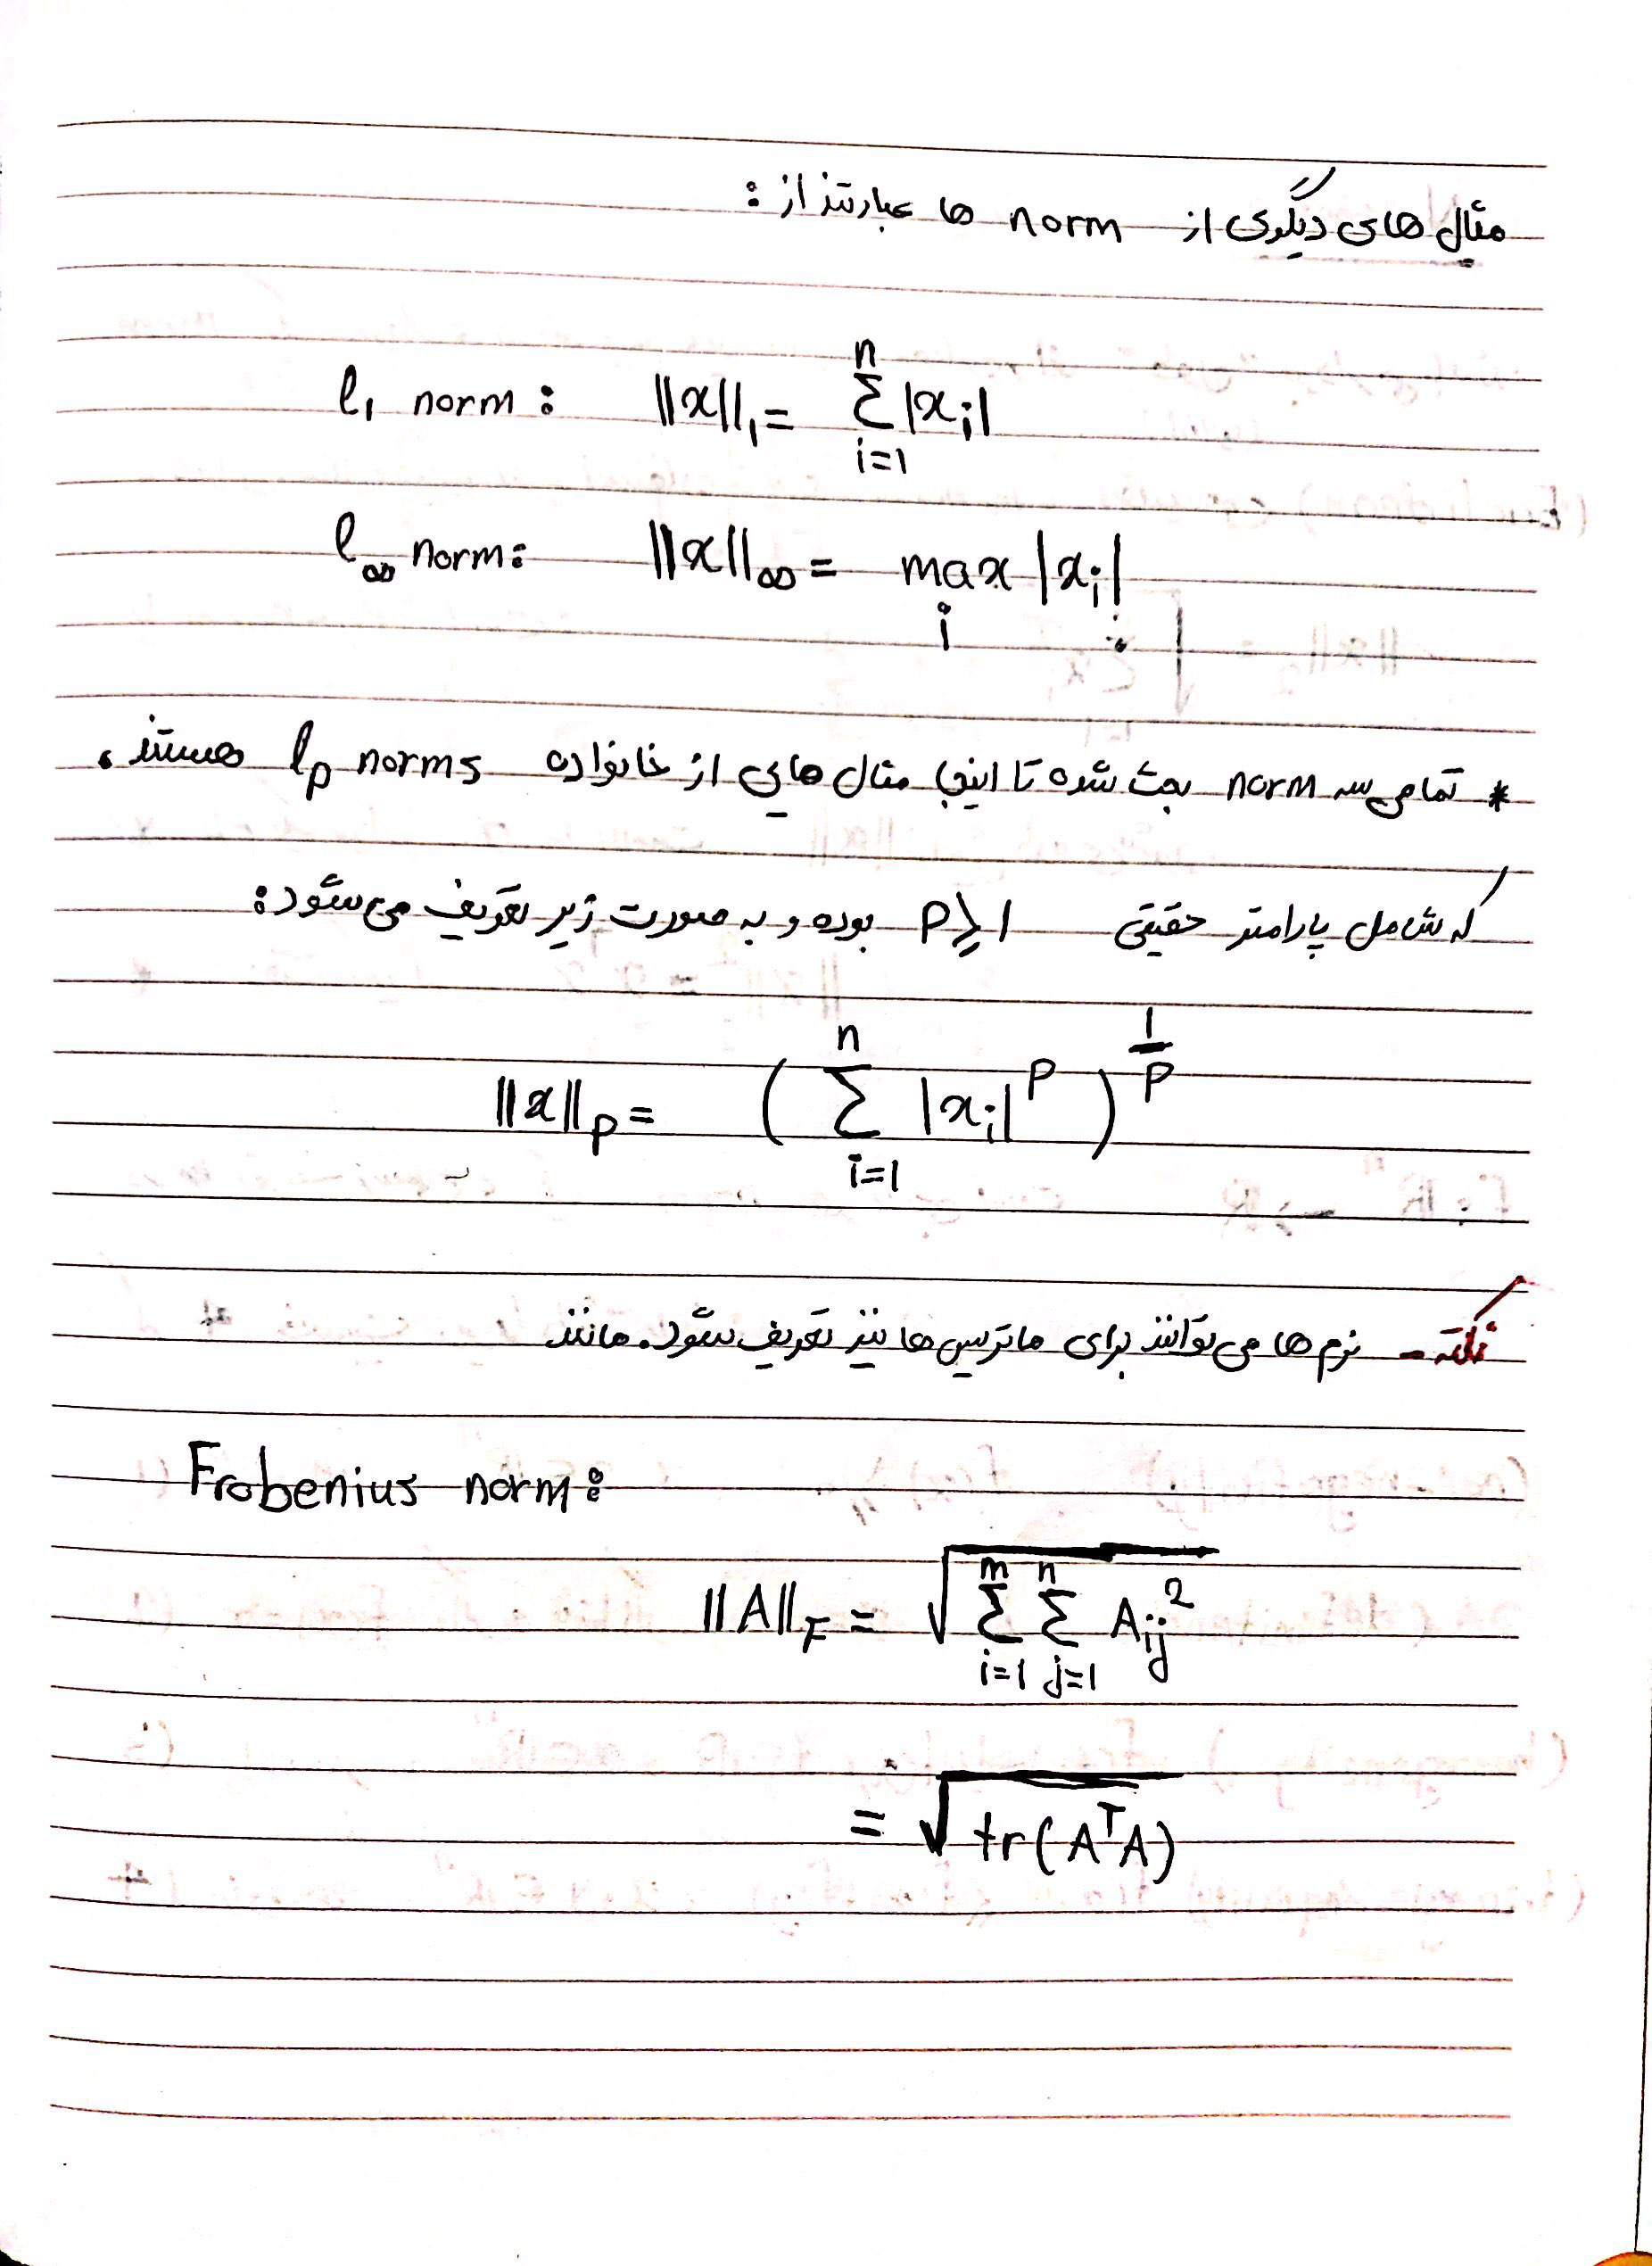 مثال های دیگری از norm ها عبارتند از :
l₁ norm : ||x||₁ = Σ_{i=1}^{n} |xᵢ|
l∞ norm : ||x||∞ = max_i |xᵢ|
* تمامی سه norm بحث شده تا اینجا مثال هایی از خانواده lp norms هستند،
که شامل پارامتر حقیقی p ≥ 1 بوده و به صورت زیر تعریف می شود :
||x||_p = ( Σ_{i=1}^{n} |xᵢ|^p )^{1/p}
نکته - نرم ها می توانند برای ماتریس ها نیز تعریف شود. مانند
Frobenius norm :
||A||_F = √( Σ_{i=1}^{m} Σ_{j=1}^{n} A_{ij}² )
= √( tr(AᵀA) )